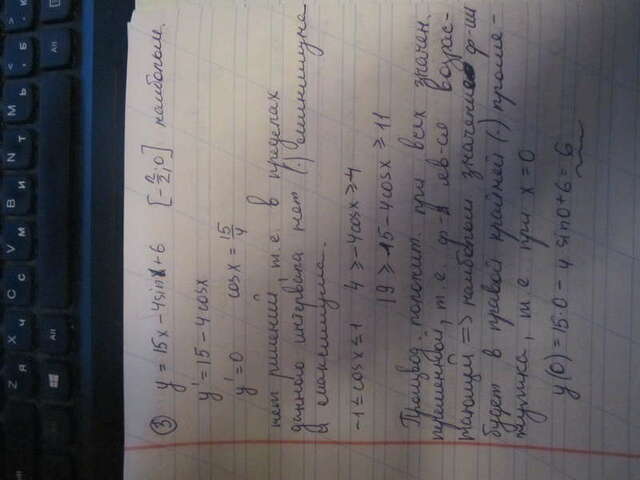 ③ y = 15x - 4sinx + 6 [-π/2; 0] наибольш.
y' = 15 - 4cosx
y' = 0 cosx = 15/4
нет решений, т.е. в пределах
данного интервала нет (·) минимума
и максимума.
-1 ≤ cosx ≤ 1 4 ≥ -4cosx ≥ -4
19 ≥ 15 - 4cosx ≥ 11
Производ. положит. при всех значен.
переменной, т.е. ф-я яв-ся возрас-
тающей => наибольш значение ф-ии
будет в правой крайней (·) проме-
жутка, т.е. при x = 0
y(0) = 15·0 - 4 sin0 + 6 = 6
Alt
Z Я
X Ч
C С
V М
B И
N Т
M Ь
< , Б
> . Ю
Alt